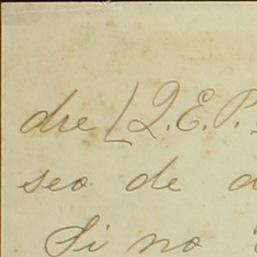 dre [Q.E.P.
seo de
Si no